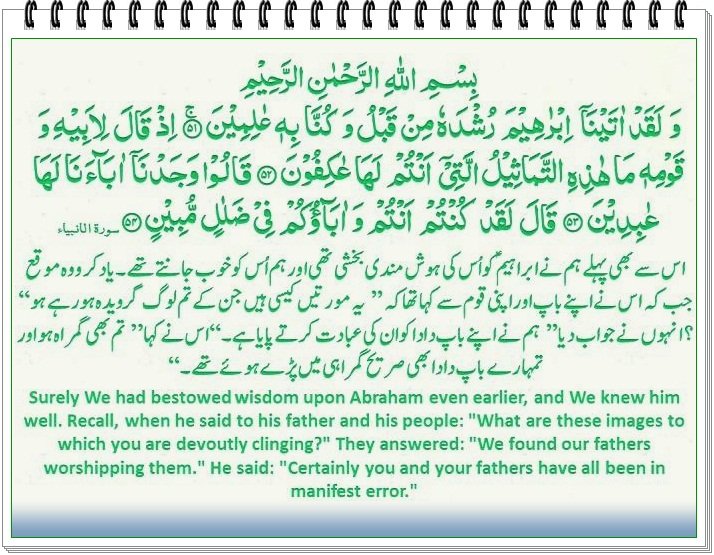 بِسْمِ اللهِ الرَّحْمٰنِ الرَّحِيْمِ
وَ لَقَدْ اٰتَيْنَاۤ اِبْرٰهِيْمَ رُشْدَهٗ مِنْ قَبْلُ وَ كُنَّا بِهٖ عٰلِمِيْنَ ﴿۵۱﴾ۚ اِذْ قَالَ لِاَبِيْهِ وَ
قَوْمِهٖ مَا هٰذِهِ التَّمَاثِيْلُ الَّتِيْۤ اَنْتُمْ لَهَا عٰكِفُوْنَ ﴿۵۲﴾ قَالُوْا وَجَدْنَاۤ اٰبَآءَنَا لَهَا
عٰبِدِيْنَ ﴿۵۳﴾ قَالَ لَقَدْ كُنْتُمْ اَنْتُمْ وَ اٰبَآؤُكُمْ فِيْ ضَلٰلٍ مُّبِيْنٍ ﴿۵۴﴾ سورۃ الانبیاء
اس سے بھی پہلے ہم نے ابراہیمؑ کو اُس کی ہوش مندی بخشی تھی اور ہم اُس کو خوب جانتے تھے۔ یاد کرو وہ موقع
جب کہ اس نے اپنے باپ اور اپنی قوم سے کہا تھا کہ ”یہ مورتیں کیسی ہیں جن کے تم لوگ گرویدہ ہو رہے ہو“
؟انہوں نے جواب دیا ”ہم نے اپنے باپ دادا کو ان کی عبادت کرتے پایا ہے۔“ اس نے کہا ”تم بھی گمراہ ہو اور
تمہارے باپ دادا بھی صریح گمراہی میں پڑے ہوئے تھے۔“
Surely We had bestowed wisdom upon Abraham even earlier, and We knew him
well. Recall, when he said to his father and his people: "What are these images to
which you are devoutly clinging?" They answered: "We found our fathers
worshipping them." He said: "Certainly you and your fathers have all been in
manifest error."